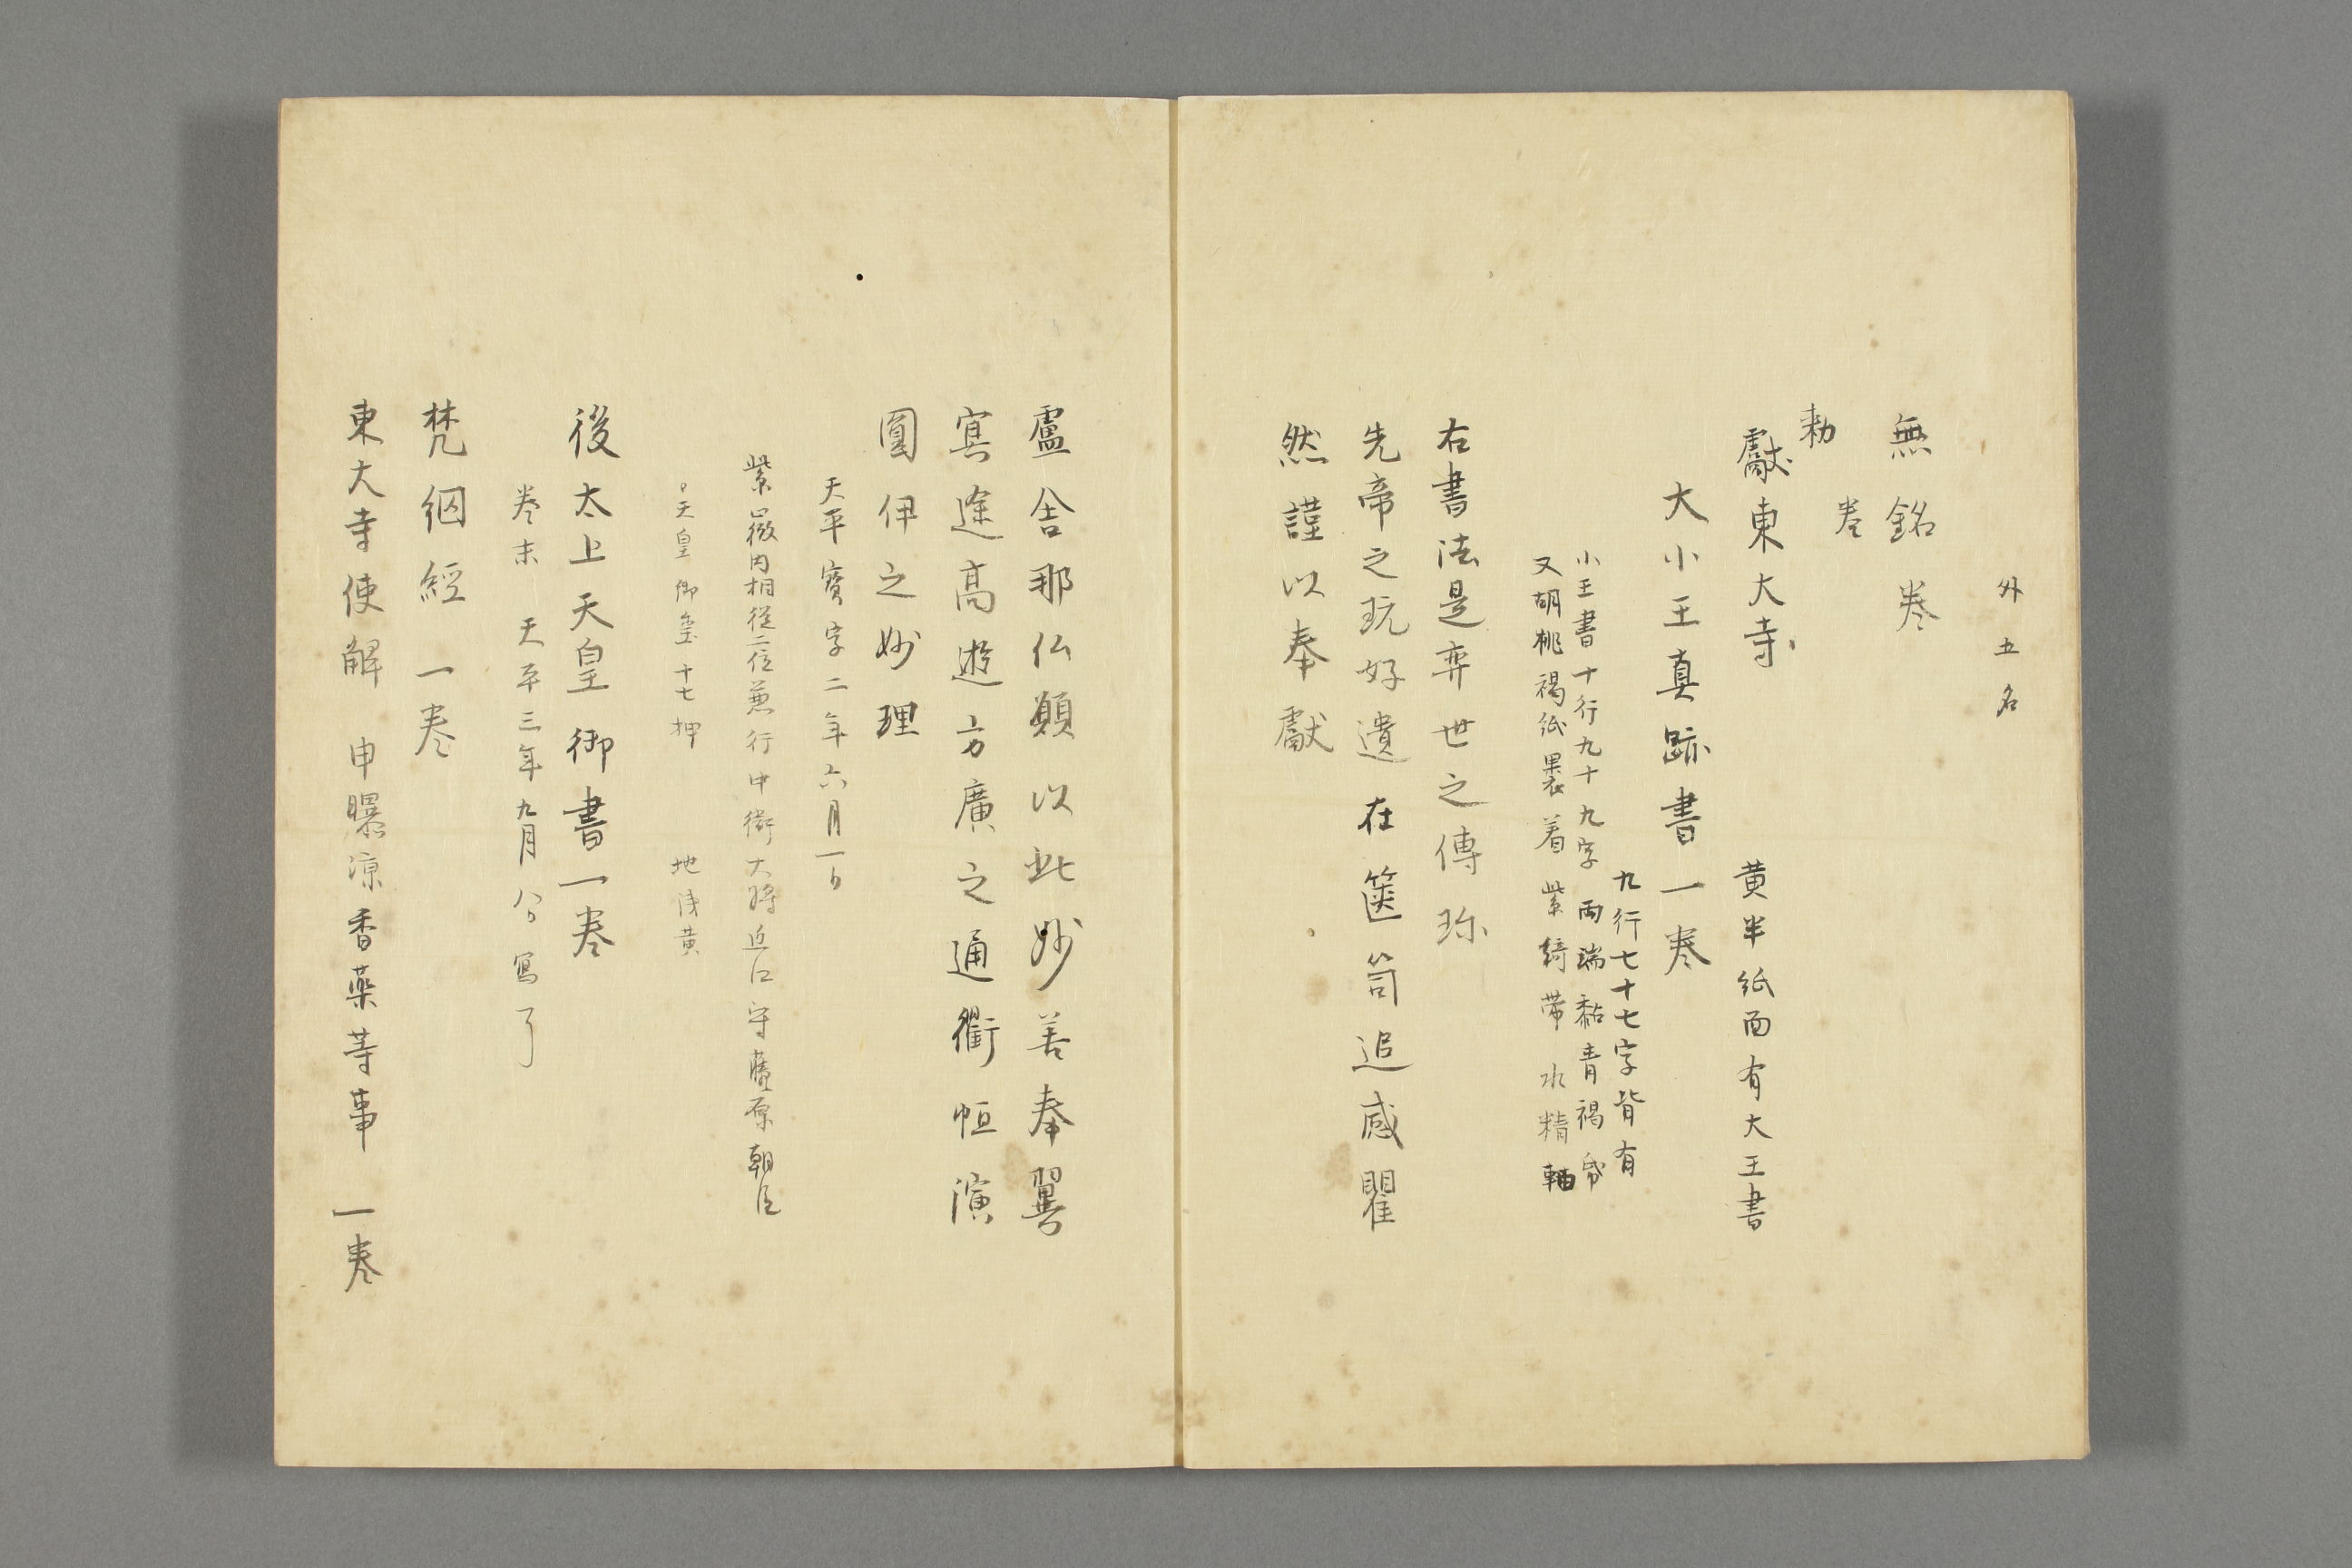 外五名
無銘巻
巻
勅
獻東大寺
黄半紙面有大王書
大小王真跡書一巻
九行七十七字背有
小王書十行九十九字両端黏青褐帋
又胡桃褐紙裏着紫綺帯水精軸
右書法是弈世之傳珎
先帝之玩好遺在篋笥追感瞿
然謹以奉獻
盧舎那仏願以此妙善奉翼
冥途高遊方廣之通衢恒演
圓伊之妙理
天平寶字二年六月一日
紫微内相従二位兼行中衛大将近江守藤原朝臣
天皇御璽十七押 地浅黄
後太上天皇御書一巻
巻末 天平三年九月八日寫了
梵網經一巻
東大寺使解 申曝凉香薬等事 一巻